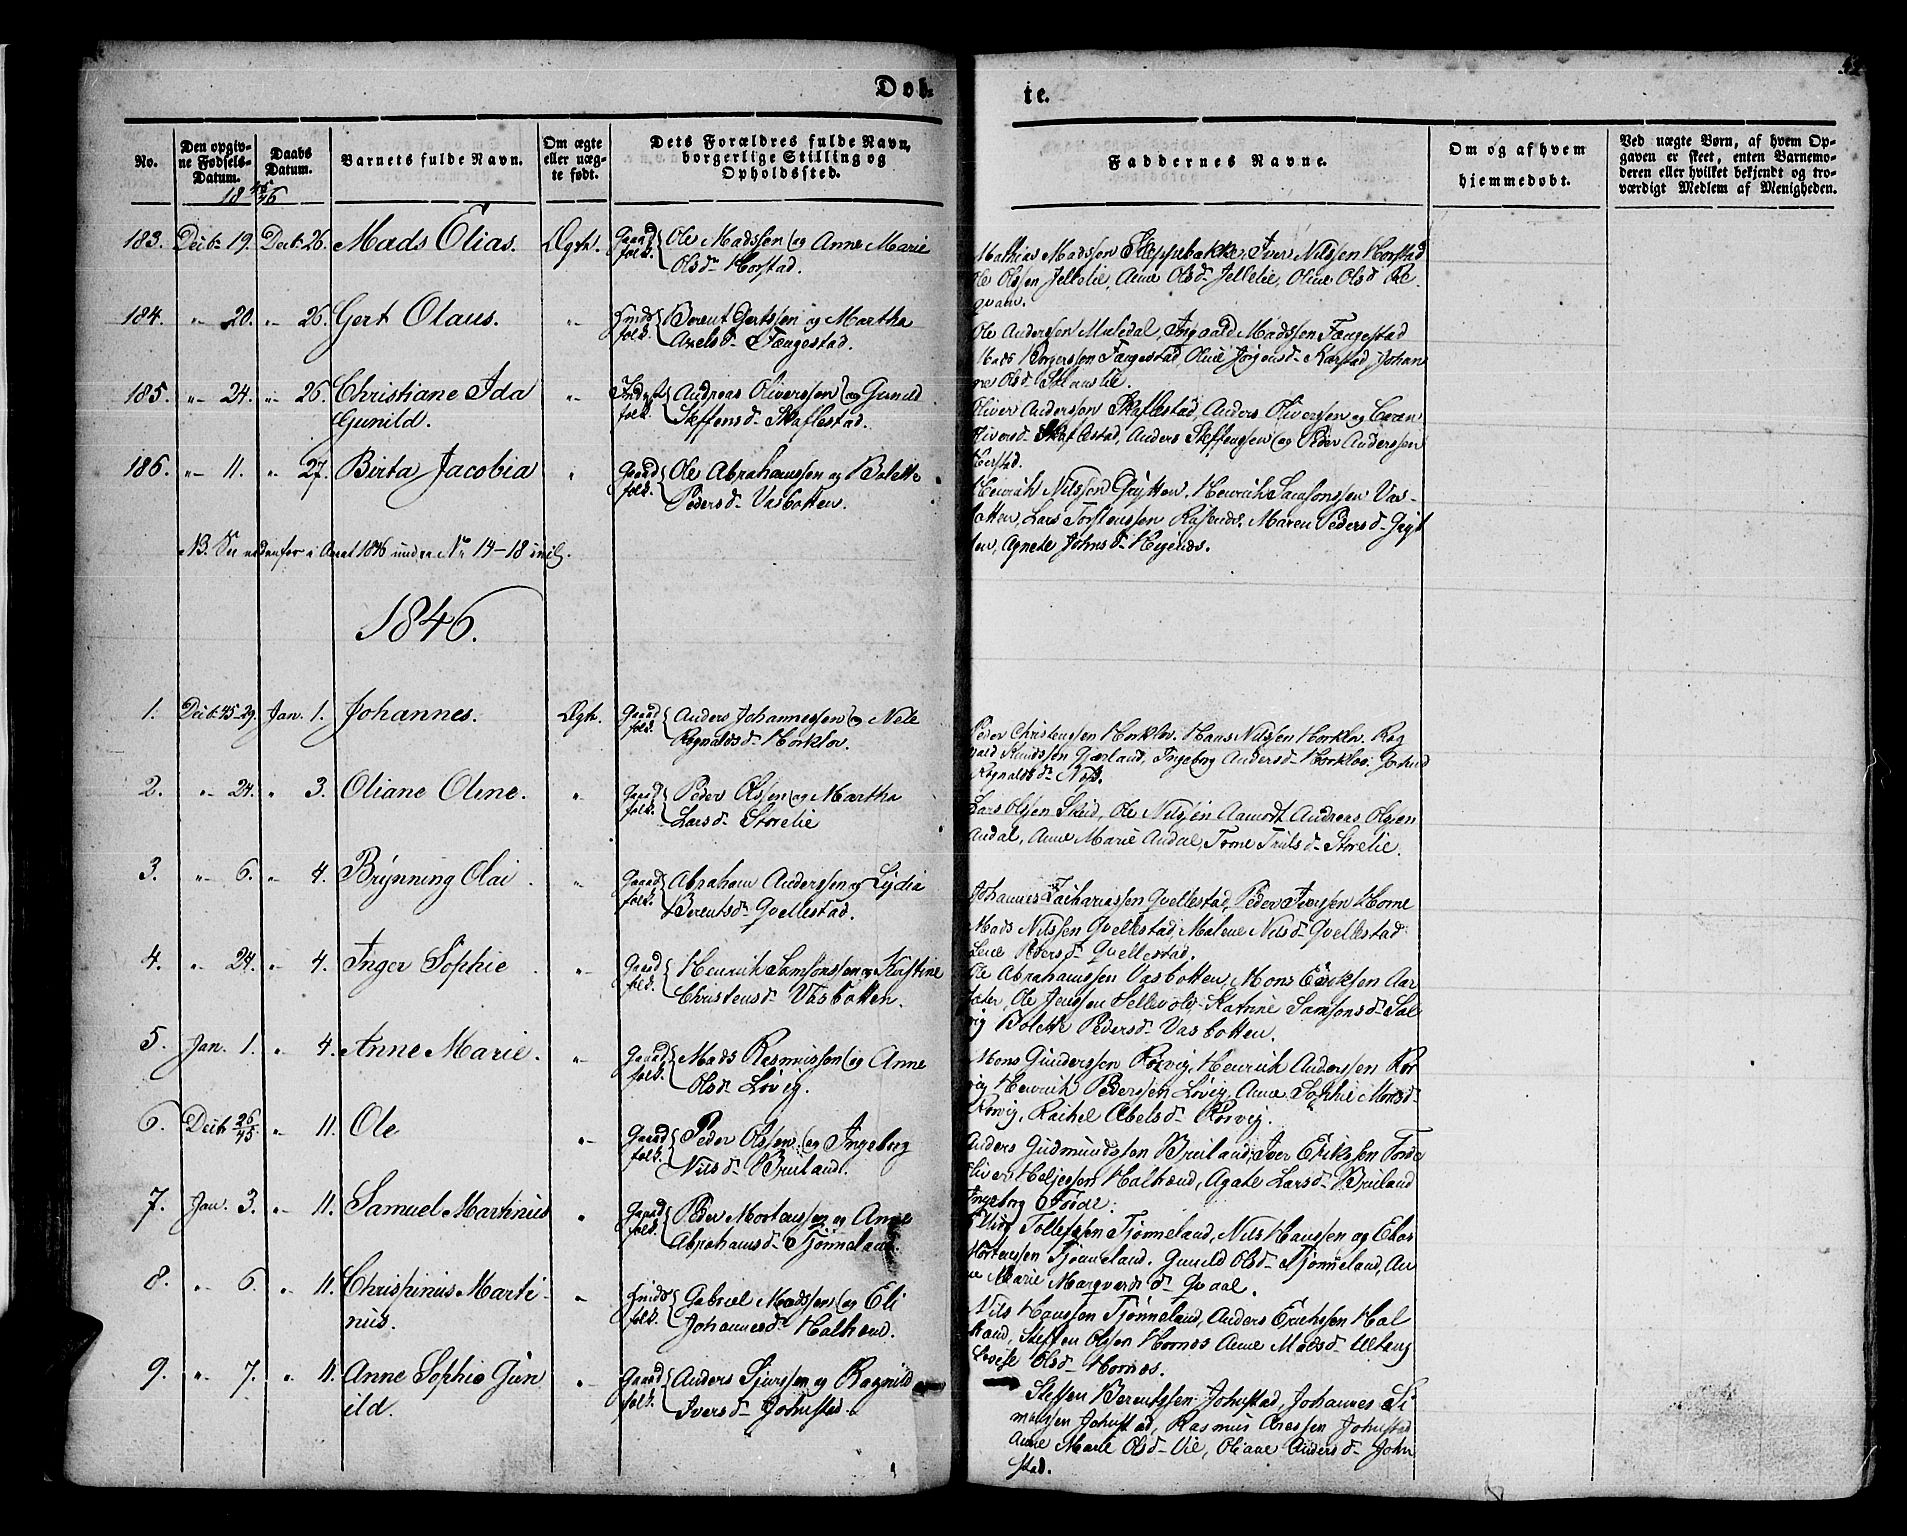 Døb-
te.
No.
Den opgiv-
ne Fødsels-
Datum.
Daabs
Datum.
Barnets fulde Navn.
Om ægte
eller uæg-
te født.
Dets Forældres fulde Navn,
borgerlige Stilling og
Opholdssted.
Faddernes Navne.
Om og af hvem
hjemmedøbt.
Ved uægte Børn, af hvem Op-
gaven er skeet, enten Barnemo-
deren eller hvilket bekjendt og tro-
værdigt Medlem af Menigheden.
18 45/46
183. Decb: 19. Decb: 26. Mads Elias. Ægte. Gaard folk. Ole Madssen og Anne Marie
Olsd- Horstad.
Mathias Madssen Skeppebakke, Iver Nilssen Horstad
Ole Olssen Jellelie, Anne Olsd- Jellelie, Oline Olsd
qvam.
184. " 20. " 26. Gert Olaus. " folk. Berent Gertssen og Martha
Axelsd- Fængestad.
Ole Anderssen Muledal, Ingvald Madssen Fængestad
Mads Børgerssen Fængestad, Oline Jørgensd- Karstad, Johan
ne Olsd-
185. " 24. " 26. Christiane Ida
Gunild. " folk. Andreas Oliverssen og Gunild
Steffensd- Skaflestad.
Oliver Anderssen Skaflestad, Anders Oliverssen og Beren
Oliversd- Skaflestad, Anders Steffenssen og Peder Anderssen
186. " 11. " 27. Birta Jacobia " Gaard folk. Ole Abrahamssen og Bolette
Pedersd- Vasbotten.
Henrik Nilssen Grytten, Henrik Samsonssen Vas-
botten, Lars Torstenssen Maren Pedersd- Gryt
ten, Agnete Johnsd-
NB. See nedenfor i Aaret 1846 under No 14-18 incl.
1846.
1. Decb: 45-29. Jan. 1. Johannes. Ægte. Gaard folk. Anders Johannessen og Nele
Rognaldsd- Horklov.
Peder Christenssen Horklov. Hans Nilssen Horklov. Rog
vald Knudssen Gjærland, Ingeborg Andersd- Horklov.
Rognaldsd-
2. " 24. " 3. Oliane Oline. " Gaard folk. Peder Olssen og Martha
Larsd- Storelie
Lars Olssen Skeid, Ole Nilssen Aamodt Andreas Olssen
Andal, Anne Marie Andal, Tome Trulsd- Storelie.
3. " 6. " 4. Brynning Olai. " Gaard folk. Abraham Anderssen og Lydia
Berentsd- Qvellestad.
Johannes Zachariassen Qvellestad, Peder Iverssen Horne
Mads Nilssen Qvellestad, Malene Nilsd- Qvellestad
Lene Pedersd- Qvellestad.
4. " 24. " 4. Inger Sophie " Gaard folk. Henrik Samsonssen og Kirstine
Christensd- Vasbotten.
Ole Abrahamssen Vasbotten, Mons Eriksen Aar
sæter, Ole Jenssen Hellevold, Katrine Samsonsd- Sol
vig Bolette Pedersd- Vasbotten.
5. Jan. 1. " 4. Anne Marie. " Gaard folk. Mads Rasmussen og Anne
Olsd- Løvig.
Mons Gunderssen Rørvig, Henrik Anderssen Rør
vig Henrik Pederssen Løvig, Anne Sophie Monsd-
Rørvig, Rachel Abelsd- Rørvig.
6. Decb: 26/45. " 11. Ole " Gaard folk. Peder Olssen og Ingeborg
Nilsd- Bruland.
Anders Gudmundssen Bruland, Iver Erikssen Førde
Oliver Heljessen Halbrænd, Agate Larsd- Bruland
Ingeborg Førde.
7. Jan. 3. " 11. Samuel Martinus " Gaard folk. Peder Mortenssen og Anne
Abrahamsd- Tjønneland.
Tollefssen Tjønneland, Nils Hanssen og Elias
Mortenssen Tjønneland. Gunild Olsd- Tjønneland, An
ne Marie Marqvardsd- Qvaal.
8. " 6. " 11. Christinus Marti-
nus. " folk. Gabriel Madssen og Eli
Johannesd- Halbrænd.
Nils Hanssen Tjønneland, Anders Erichssen Hal
brænd, Steffen Olssen Hornes Anne Madsd-
Lovise Olsd- Hornes.
9. " 7. " 11. Anne Sophie Gun
ild. " Gaard folk. Anders Sjurssen og Ragnild
Iversd- Johnstad.
Steffen Berentssen Johnstad, Johannes Si
monssen Johnstad, Rasmus Johnstad
Anne Marie Olsd- Vie, Oliane Andersd- John
stad.